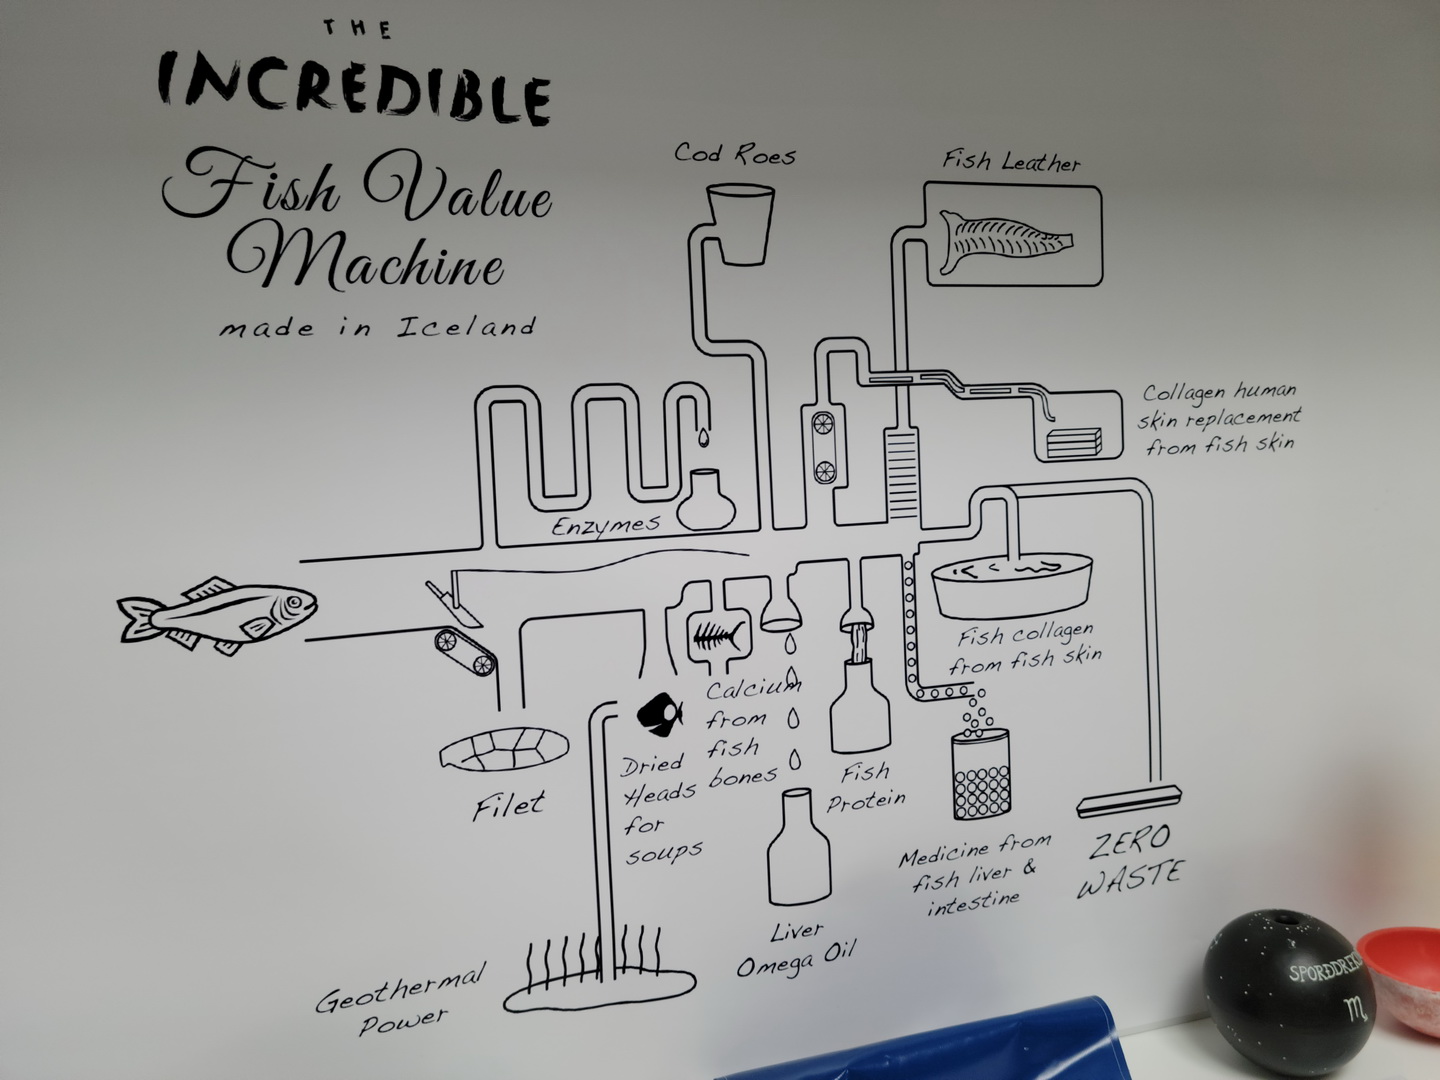 THE
INCREDIBLE
Fish Value
Machine
made in Iceland
Cod Roes
Fish Leather
Collagen human
skin replacement
from fish skin
Enzymes
Fish collagen
from fish skin
Filet
Dried
Heads
for
soups
Calcium
from
fish
bones
Fish
Protein
Medicine from
fish liver &
intestine
ZERO
WASTE
Liver
Omega Oil
Geothermal
Power